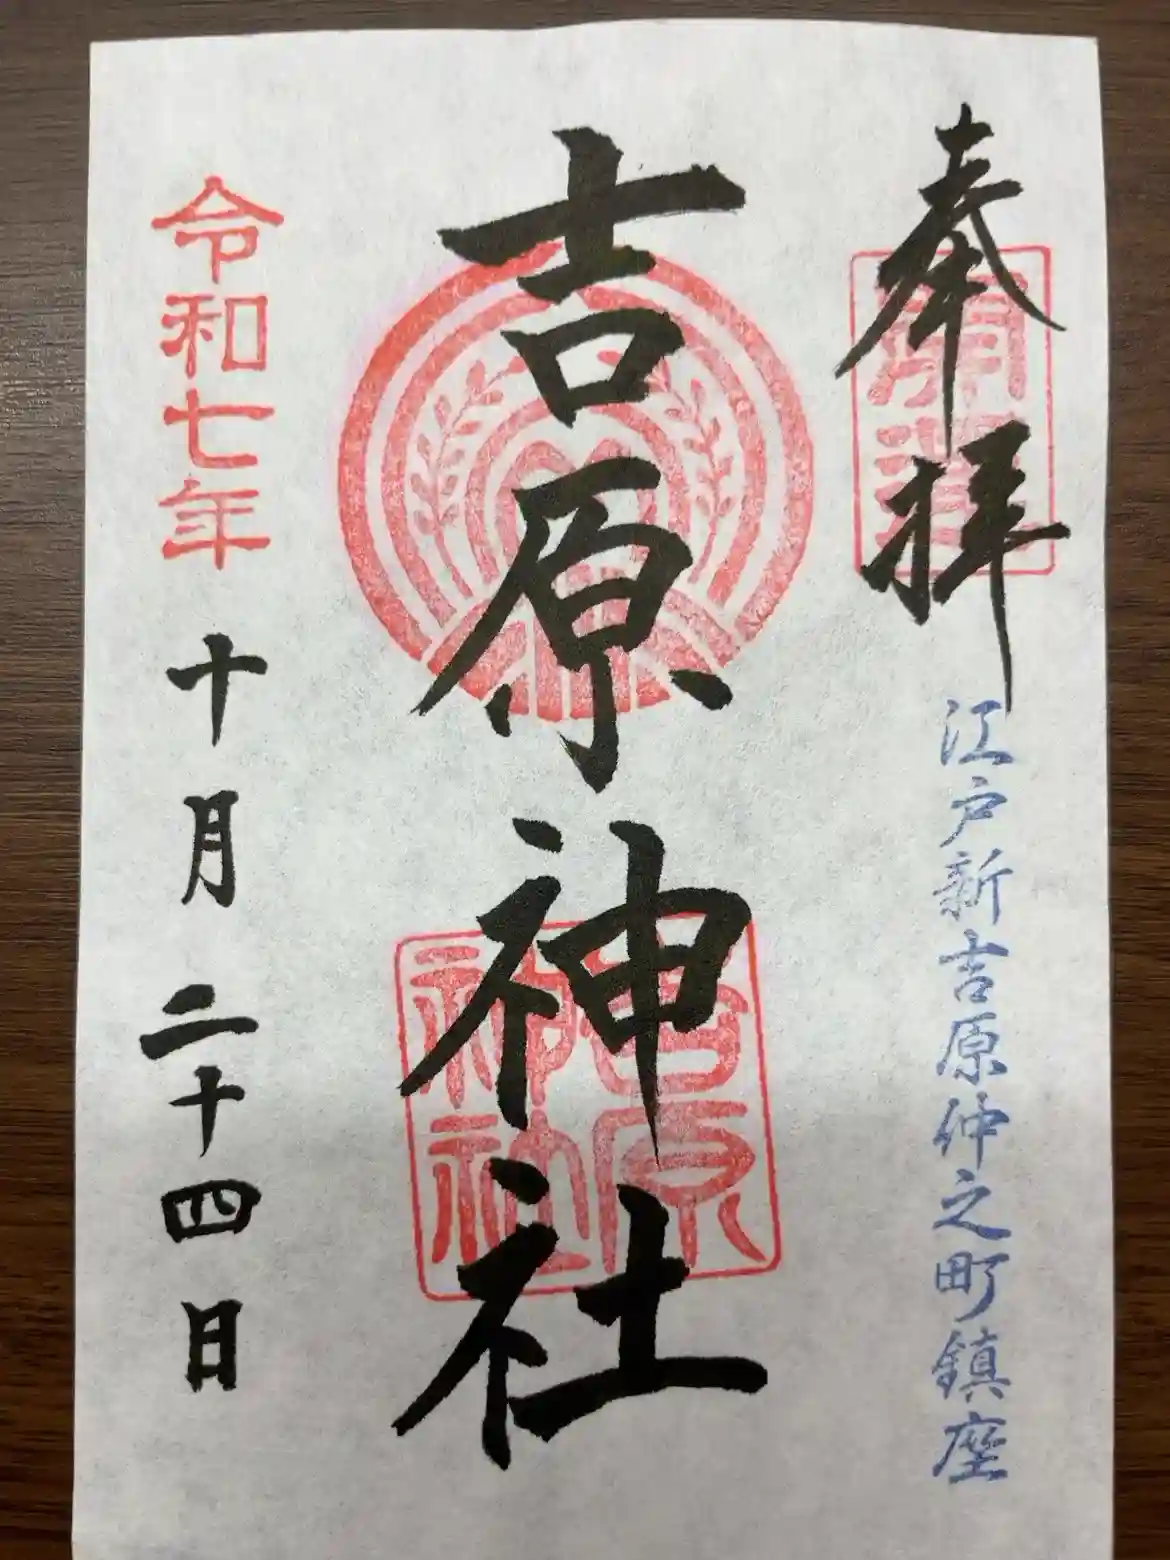 奉拝
江戸新吉原仲之町鎮座
吉原神社
吉原
神社
令和七年
十月二十四日